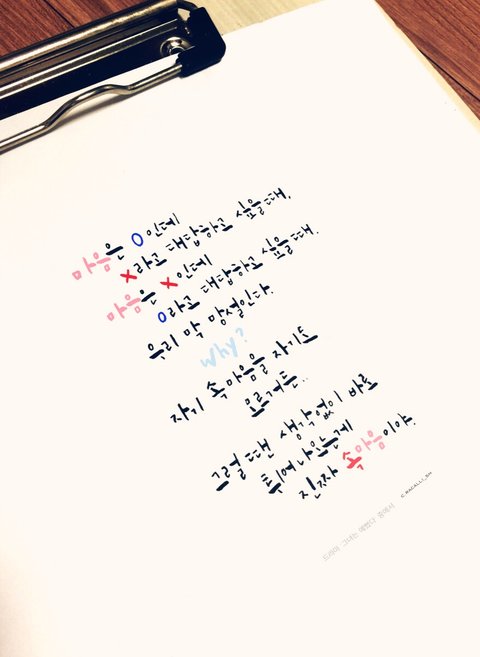 마음은 O인데
X라고 대답하고 싶을때.
마음은 X인데
O라고 대답하고 싶을때.
우리 막 망설인다.
Why?
자기 속마음을 자기도
모르거든..
그럴 땐 생각없이 바로
튀어나오는게
진짜 속마음이야.
드라마 그녀는 예뻤다 중에서
C.MACALLI_SH